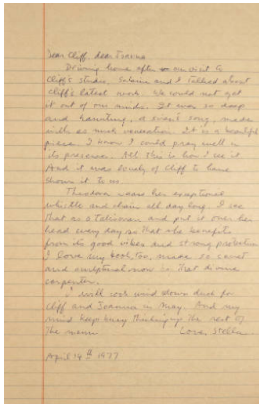 Dear Cliff, dear Joanna
Driving home after our visit to
Cliff's studio, and I talked about
Cliff's latest work. We could not get
it out of our minds. It was so deep
and haunting, a swan's song, made
with so much veneration. It is a beautiful
piece. I know I could pray well in
its presence. All this is how I see it
And it was lovely of Cliff to have
shown it to me.
Theodora wears her sculptural
whistle and chain all day long. I see
that as a talisman and put it over her
head every day so that she benefits
from its good vibes and strong protection
I love my book, too, made so
and sculptural now by that divine
carpenter.
I will cook wind down duck for
Cliff and Joanna in May. And my
mind keeps busy thinking up the rest of
the menu. Love, Stella
April 14th 1977